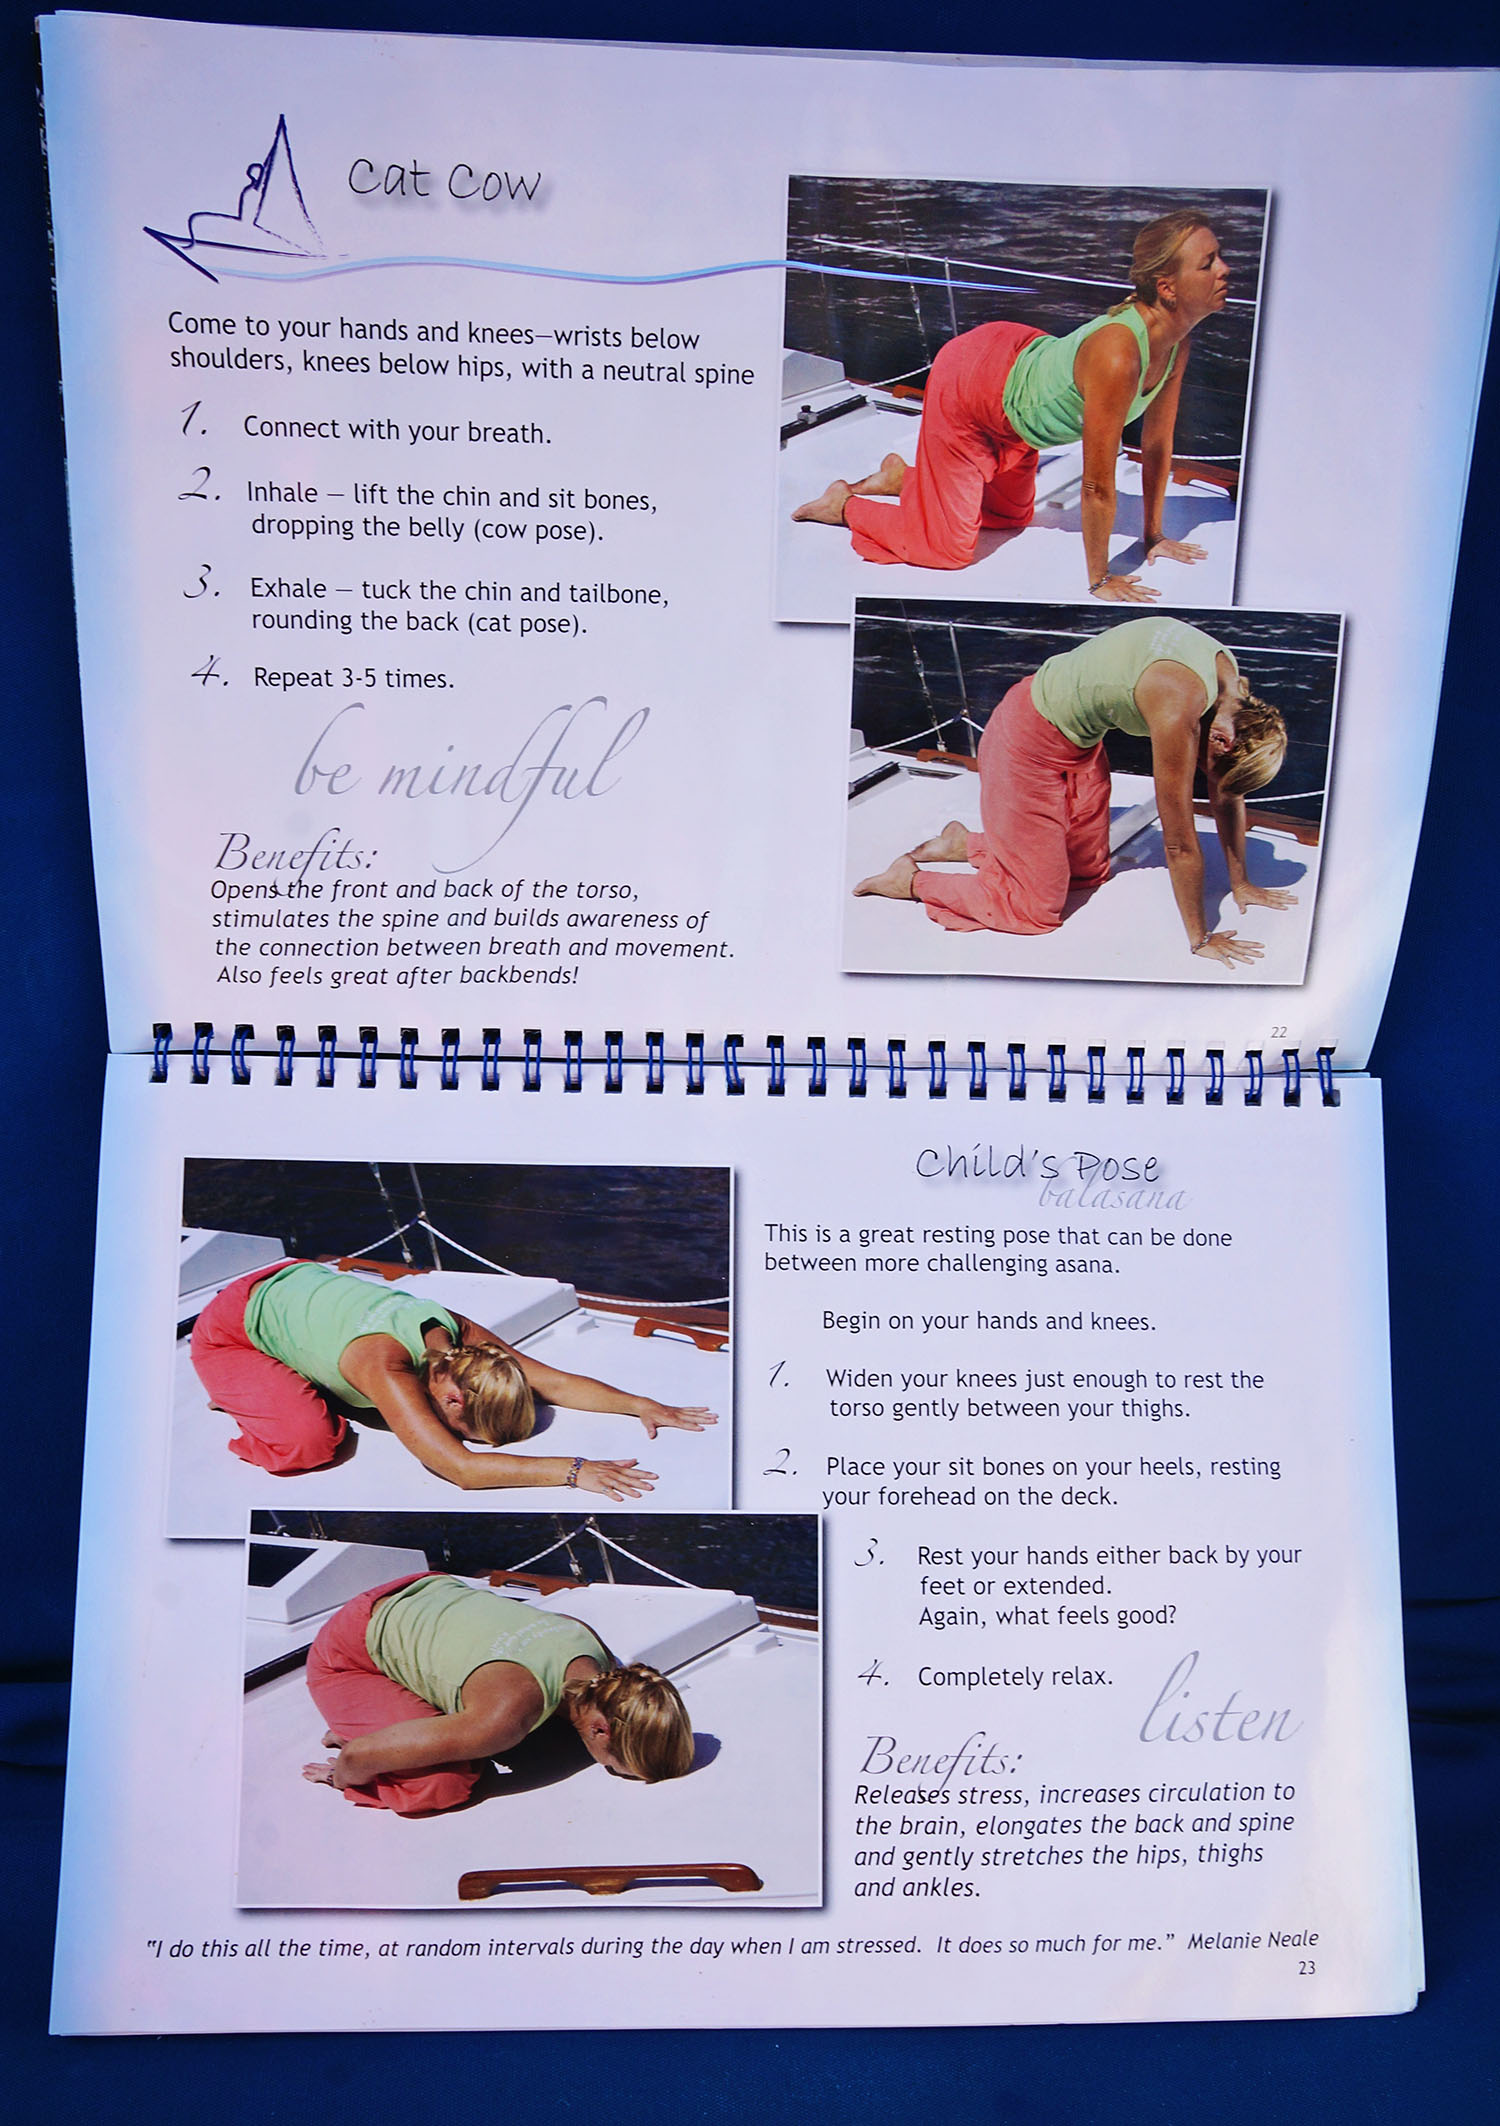 Cat Cow
Come to your hands and knees—wrists below
shoulders, knees below hips, with a neutral spine
1. Connect with your breath.
2. Inhale – lift the chin and sit bones,
dropping the belly (cow pose).
3. Exhale – tuck the chin and tailbone,
rounding the back (cat pose).
4. Repeat 3-5 times.
be mindful
Benefits:
Opens the front and back of the torso,
stimulates the spine and builds awareness of
the connection between breath and movement.
Also feels great after backbends!
22
Child's Pose
balasana
This is a great resting pose that can be done
between more challenging asana.
Begin on your hands and knees.
1. Widen your knees just enough to rest the
torso gently between your thighs.
2. Place your sit bones on your heels, resting
your forehead on the deck.
3. Rest your hands either back by your
feet or extended.
Again, what feels good?
4. Completely relax.
listen
Benefits:
Releases stress, increases circulation to
the brain, elongates the back and spine
and gently stretches the hips, thighs
and ankles.
"I do this all the time, at random intervals during the day when I am stressed. It does so much for me." Melanie Neale
23